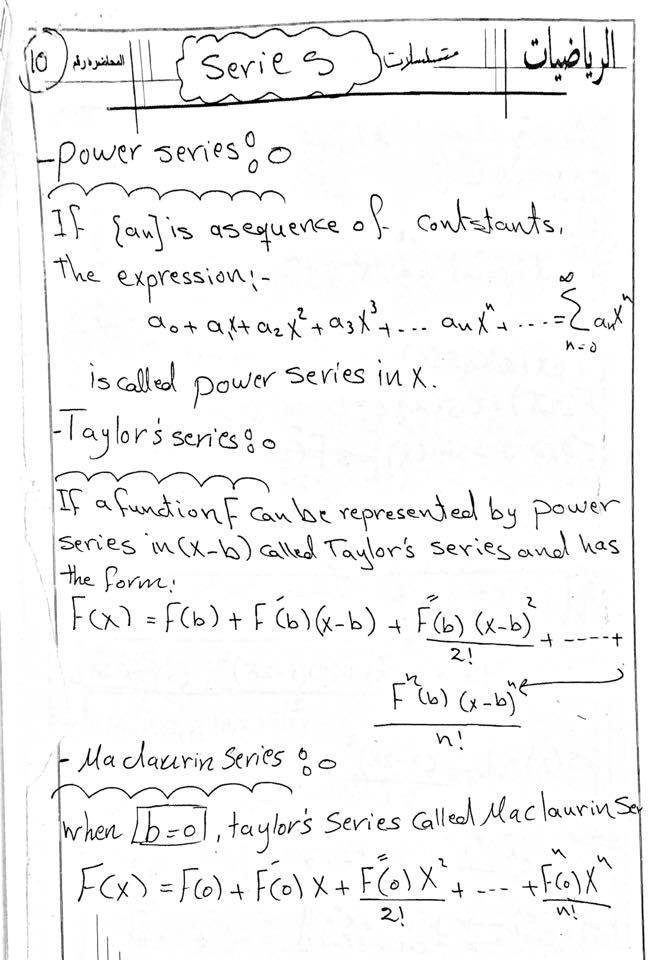 الرياضيات متسلسلات Series المحاضرة رقم 10
- Power series:o
If {an} is a sequence of contstants,
the expression:-
a₀ + a₁x + a₂x² + a₃x³ + ... aₙxⁿ + ... = ∑ₙ₌₀^∞ aₙxⁿ
is called power series in x.
- Taylor's series:o
If a function F can be represented by power
series in (x-b) called Taylor's series and has
the form:
F(x) = F(b) + F′(b)(x-b) + F″(b)(x-b)²/2! + -----+
Fⁿ(b)(x-b)ⁿ/n!
- Maclaurin series:o
when b=0, taylor's series called Maclaurin Se
F(x) = F(0) + F′(0)x + F″(0)x²/2! + --- + Fⁿ(0)xⁿ/n!